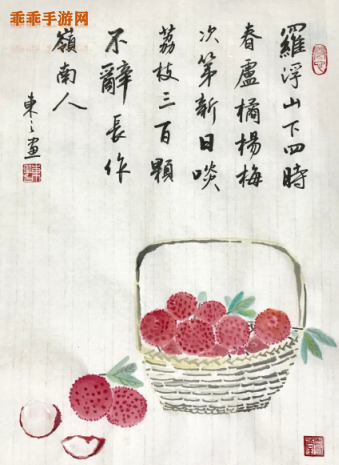 乖乖手游网
羅浮山下四時
春盧橘楊梅
次第新日啖
荔枝三百顆
不辭長作
嶺南人
東之畫